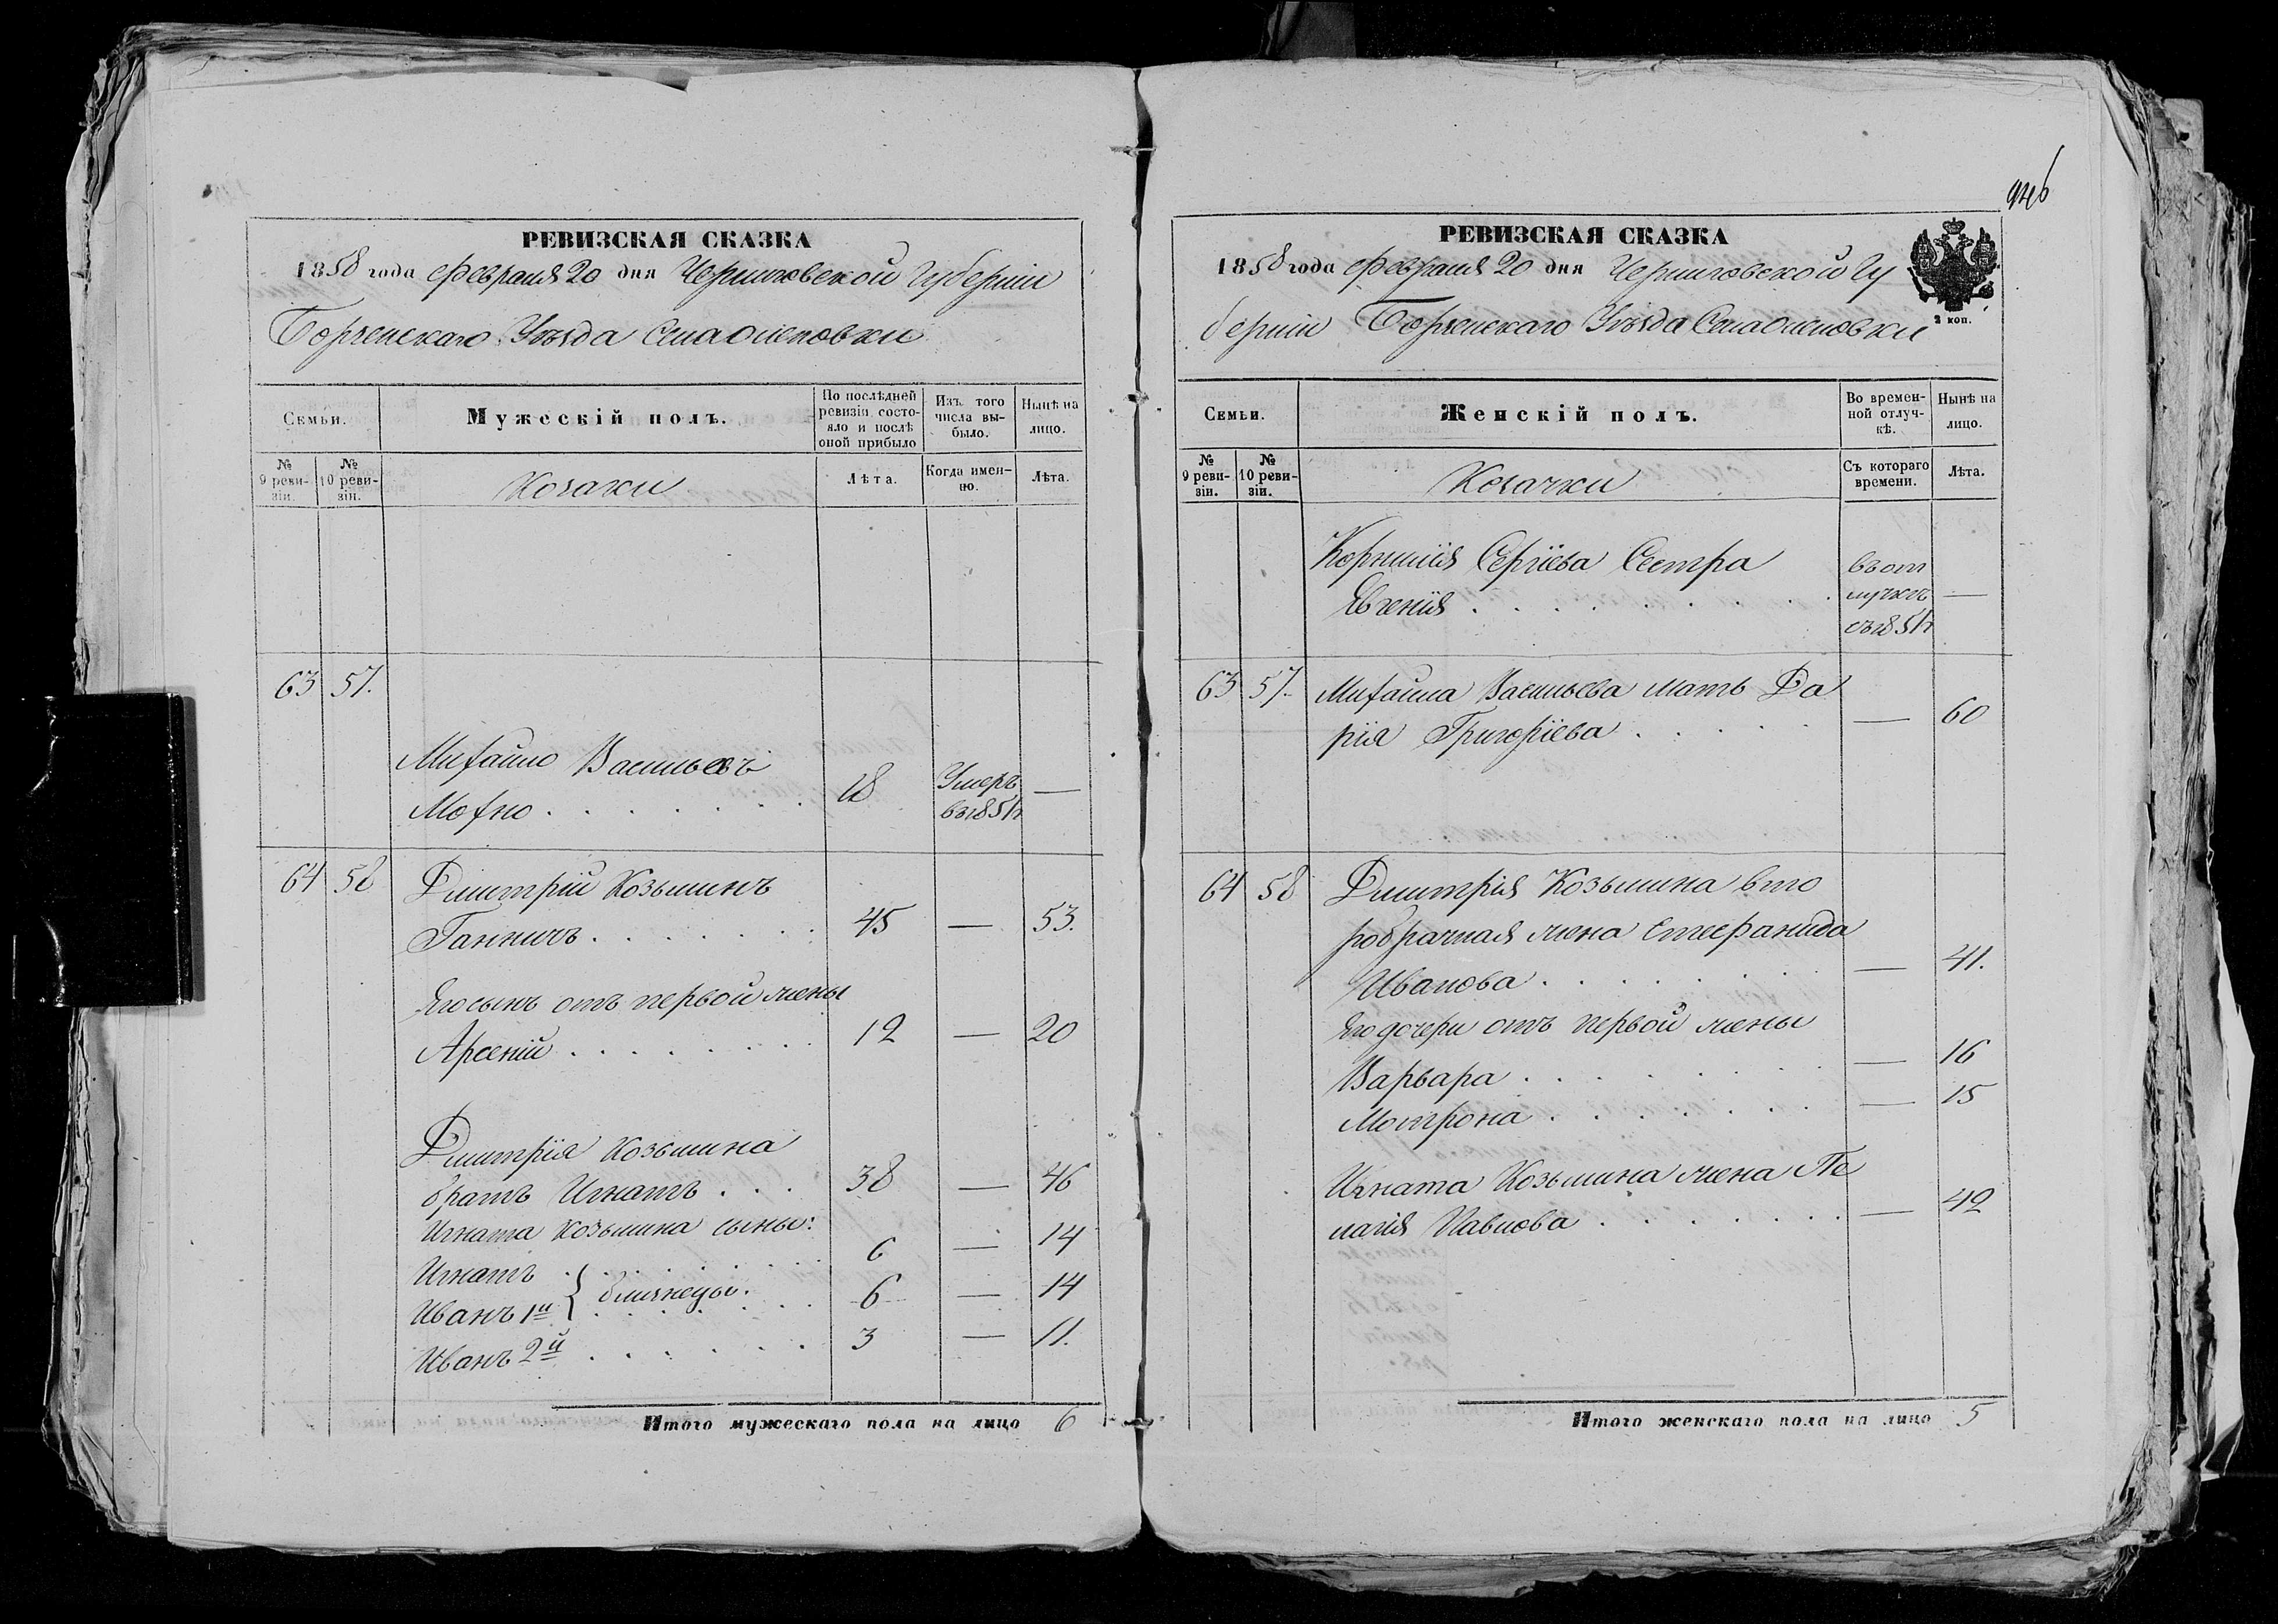 946
РЕВИЗСКАЯ СКАЗКА
1858 года Февраля 20 дня Черниговской Губерніи
Борзенскаго Уѣзда Села Оленовки
Семьи.
Мужескій полъ.
По послѣдней ревизіи состояло и послѣ оной прибыло
Изъ того числа выбыло.
Нынѣ на лицо.
№ 9 ревизіи.
№ 10 ревизіи.
Козаки
Лѣта.
Когда именно.
Лѣта.
63 57.
Михайло Васильевъ
Мохно . . . . . . . 18 Умеръ въ 1854 —
64 58 Дмитрій Козьминъ
Ганничъ . . . . . . . 45 — 53.
Его сынъ отъ первой жены
Арсеній . . . . . . . . 12 — 20
Дмитрія Козьмина
братъ Игнатъ . . . 38 — 46
Игната Козьмина сыны:
Игнатъ . . . . . . . . 6 — 14
Иванъ 1й } близнецы. 6 — 14
Иванъ 2й . . . . . . . 3 — 11.
Итого мужескаго пола на лицо 6
РЕВИЗСКАЯ СКАЗКА
1858 года Февраля 20 дня Черниговской Гу
берніи Борзенскаго Уѣзда Села Оленовки
2 коп.
Семьи.
Женскій полъ.
Во временной отлучкѣ.
Нынѣ на лицо.
№ 9 ревизіи.
№ 10 ревизіи.
Козачки
Съ котораго времени.
Лѣта.
Корнилія Сергіева Сестра
Евгенія . . . . . . . . въ отлучкѣ съ 1854 —
63 57. Михайла Васильева мать Да
рія Григоріева . . . . . — 60
64 58 Дмитрія Козьмина вто
робрачная жена Стефанида
Иванова . . . . . . . — 41.
Его дочери отъ первой жены
Варвара . . . . . . . . — 16
Мотрона . . . . . . . — 15
Игната Козьмина жена Пе
лагія Павлова . . . . . . . — 42
Итого женскаго пола на лицо 5